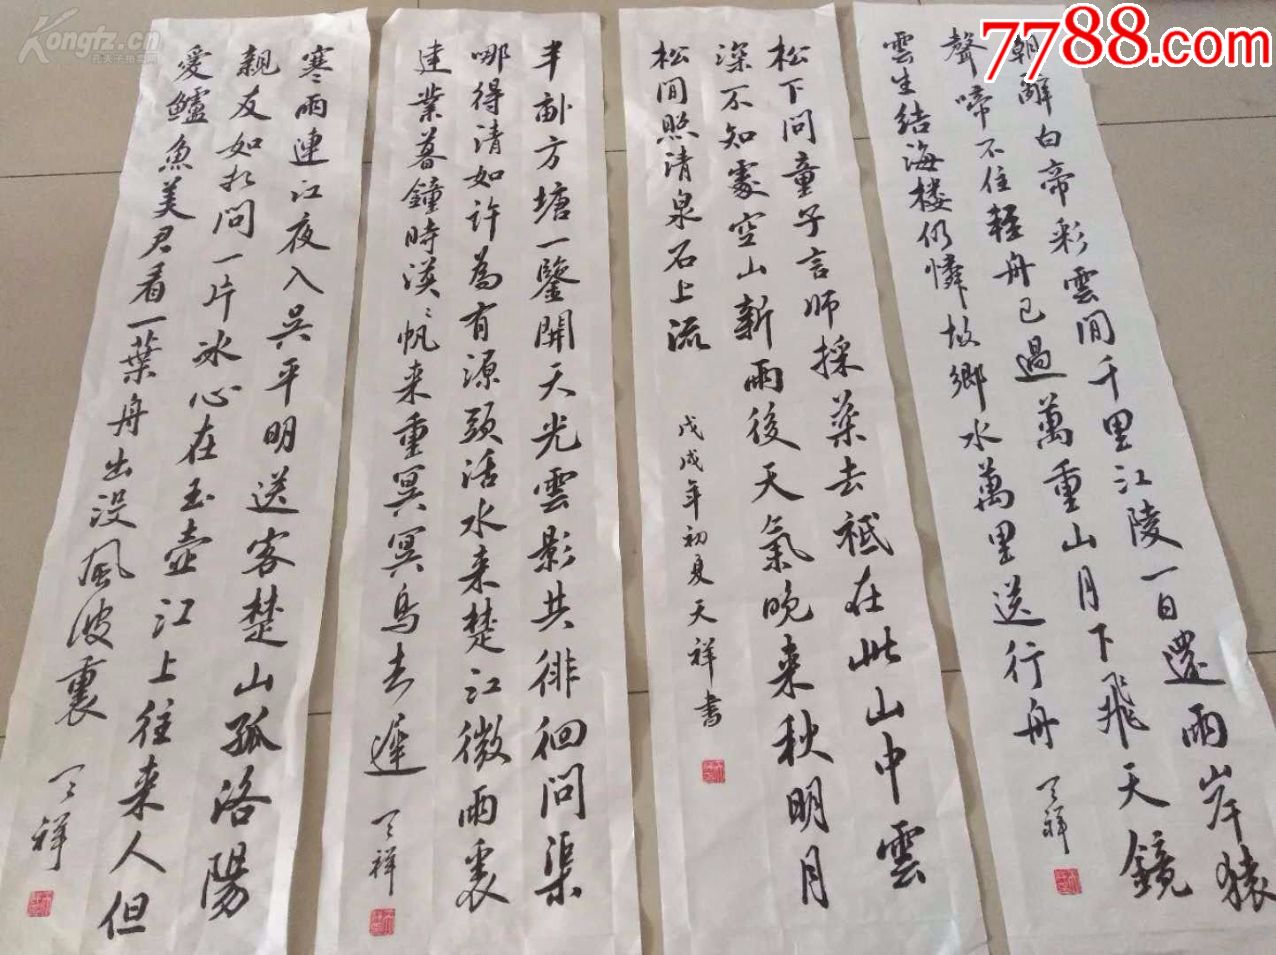 7788.com
Kongfz.cn
孔夫子拍卖网
朝辭白帝彩雲間千里江陵一日還兩岸猿
聲啼不住輕舟已過萬重山月下飛天鏡
雲生結海樓仍憐故鄉水萬里送行舟
天祥
松下问童子言师採药去衹在此山中雲
深不知處空山新雨後天氣晚来秋明月
松间照清泉石上流
戊戌年初夏天祥書
半畝方塘一鑒開天光雲影共徘徊问渠
哪得清如许為有源头活水来楚江微雨裏
建業暮鐘時漠〻帆来重冥冥鸟去遲
天祥
寒雨連江夜入吴平明送客楚山孤洛陽
親友如相问一片冰心在玉壶江上往来人但
爱鱸魚美君看一葉舟出没風波裏
天祥